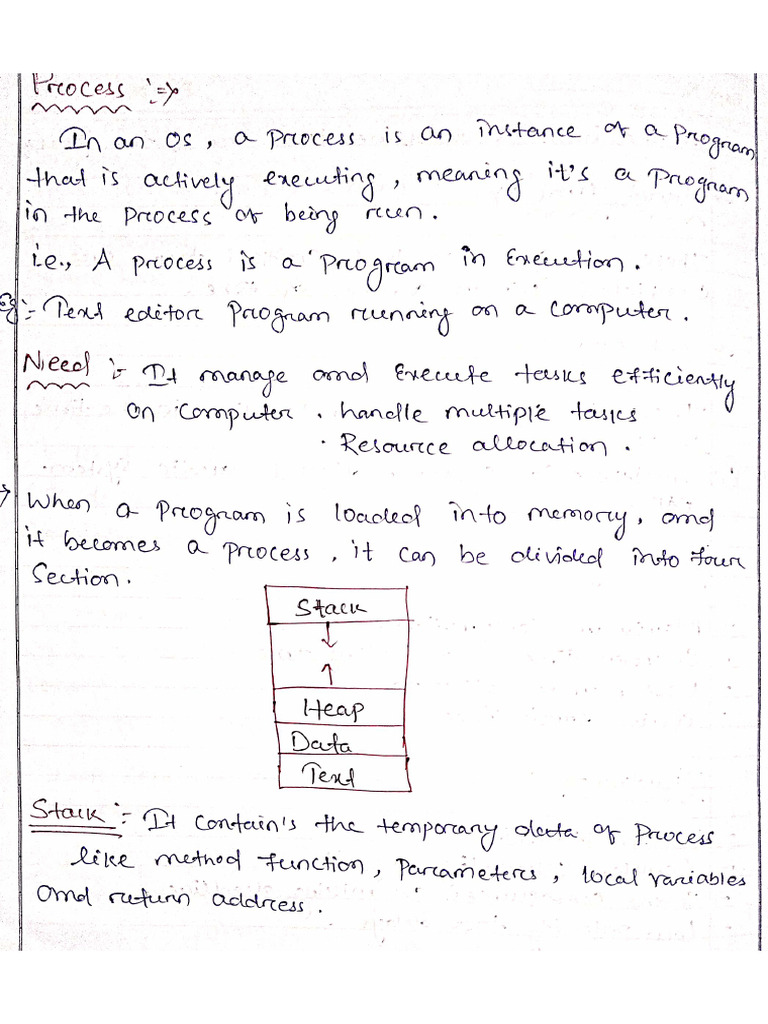 Process :=>
In an OS, a process is an instance of a program
that is actively executing, meaning it's a program
in the process of being run.
i.e., A process is a program in Execution.
Eg:- Text editor program running on a computer.
Need :- It manage and Execute tasks efficiently
on computer. handle multiple tasks
. Resource allocation.
→ When a program is loaded into memory, and
it becomes a process, it can be divided into four
Section.
Stack
↓
↑
Heap
Data
Text
Stack :- It contain's the temporary data of process
like method function, parameters, local variables
and return address.